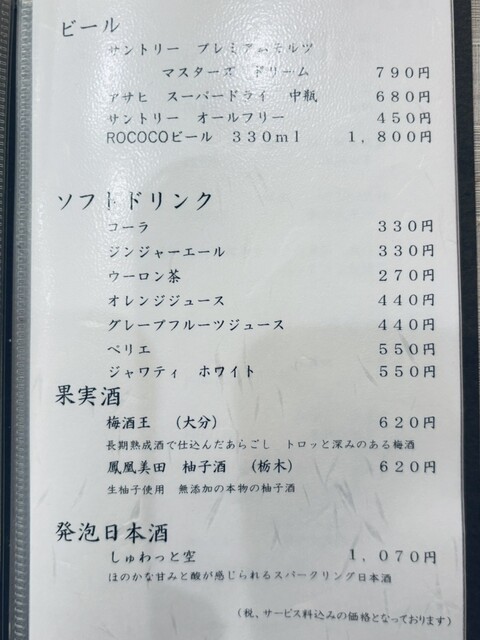 ビール
サントリー　プレミアムモルツ
マスターズ　ドリーム　７９０円
アサヒ　スーパードライ　中瓶　６８０円
サントリー　オールフリー　４５０円
ROCOCOビール　３３０ml　１，８００円
ソフトドリンク
コーラ　３３０円
ジンジャーエール　３３０円
ウーロン茶　２７０円
オレンジジュース　４４０円
グレープフルーツジュース　４４０円
ペリエ　５５０円
ジャワティ　ホワイト　５５０円
果実酒
梅酒王　（大分）　６２０円
長期熟成酒で仕込んだあらごし　トロッと深みのある梅酒
鳳凰美田　柚子酒　（栃木）　６２０円
生柚子使用　無添加の本物の柚子酒
発泡日本酒
しゅわっと空　１，０７０円
ほのかな甘みと酸が感じられるスパークリング日本酒
（税、サービス料込みの価格となっております）